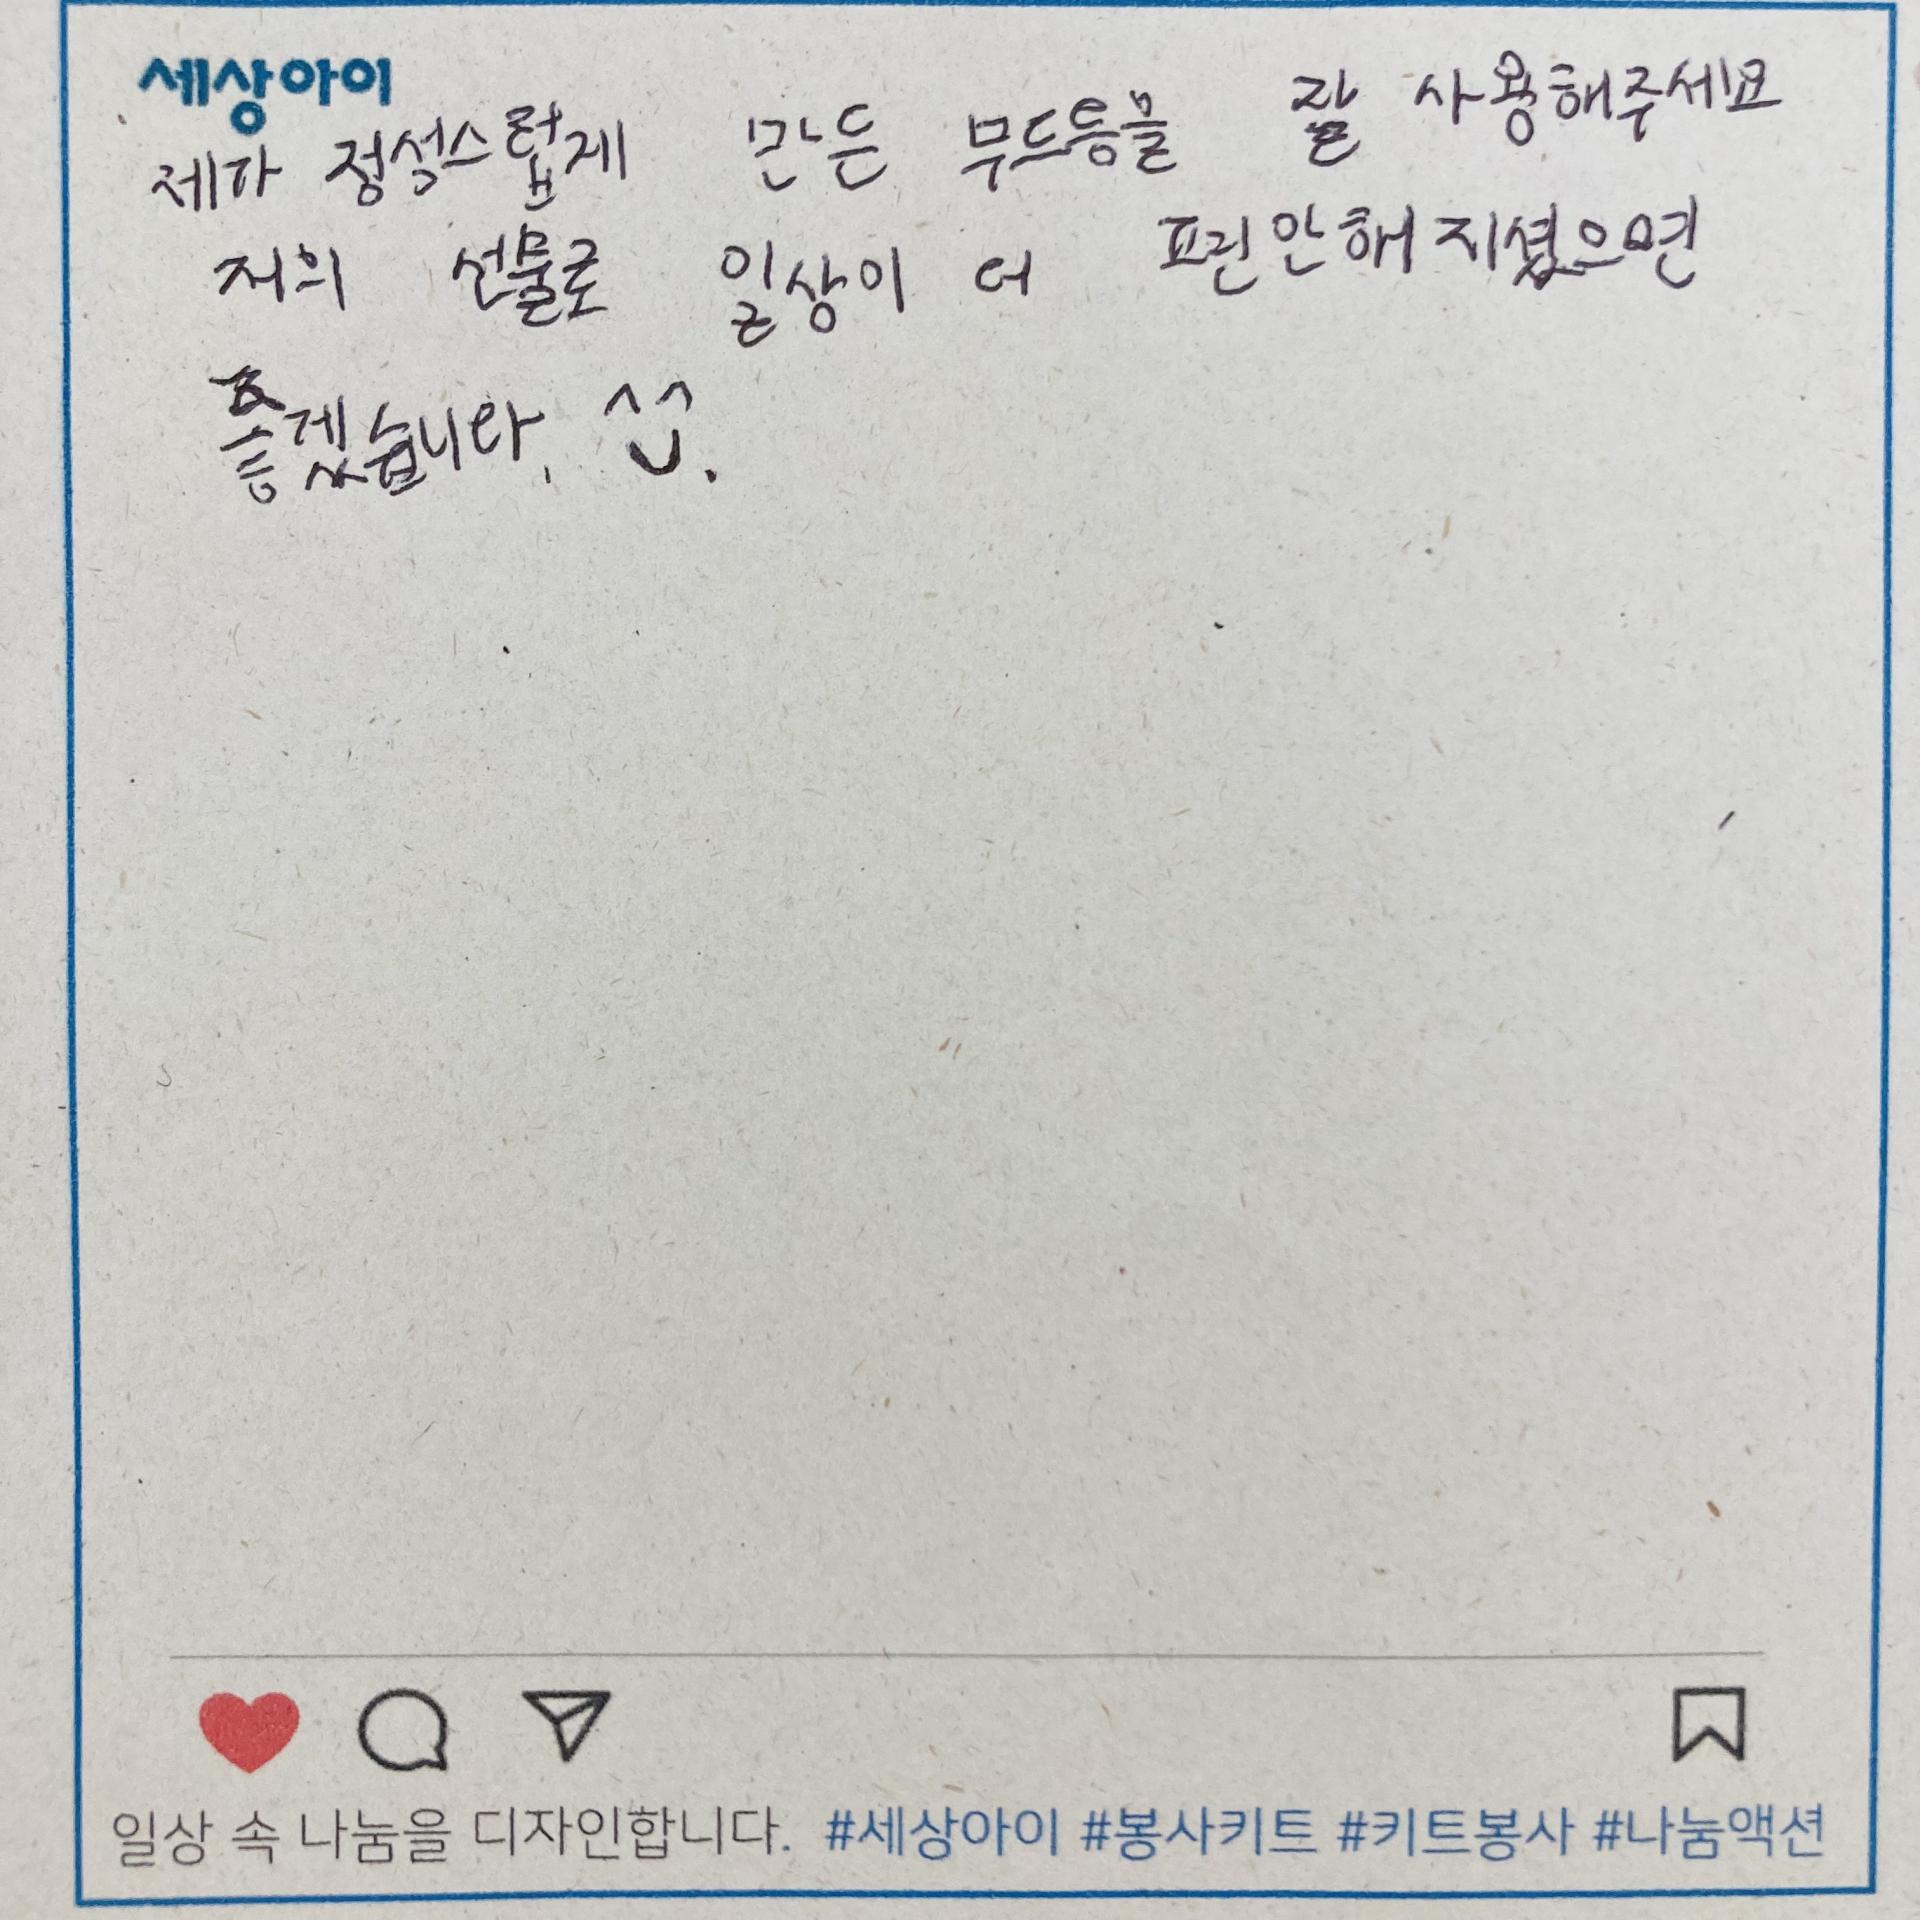 세상아이
제가 정성스럽게 만든 무드등을 잘 사용해주세요
저의 선물로 일상이 더 편안해지셨으면
좋겠습니다. ^^.
일상 속 나눔을 디자인합니다. #세상아이 #봉사키트 #키트봉사 #나눔액션